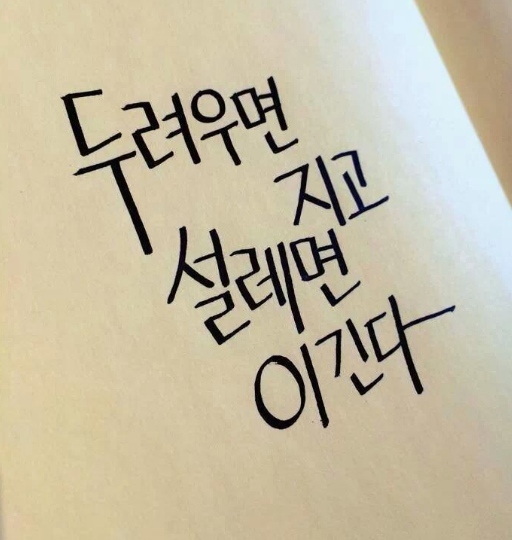 두려우면
지고
설레면
이긴다